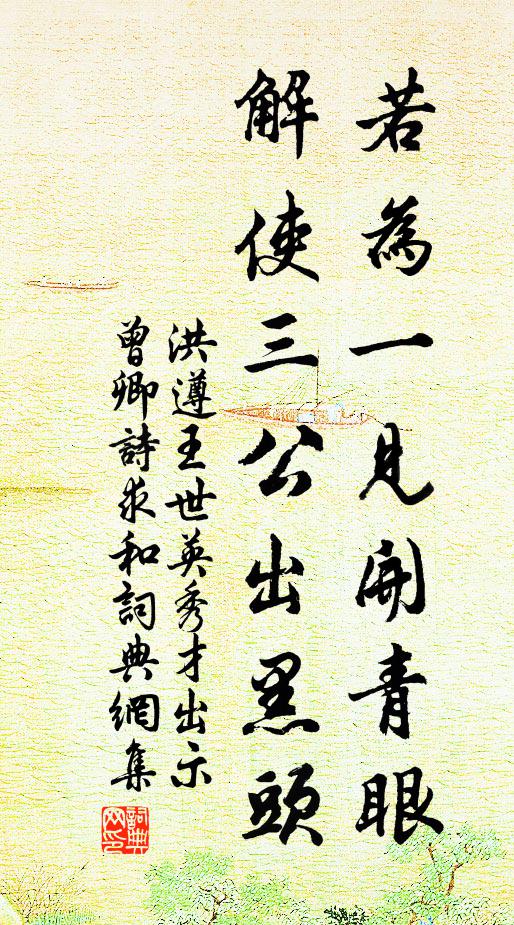 若為一見開青眼
解使三公出黑頭
洪遵王世英秀才出示
曾卿詩求和詞典網集
詞典網印